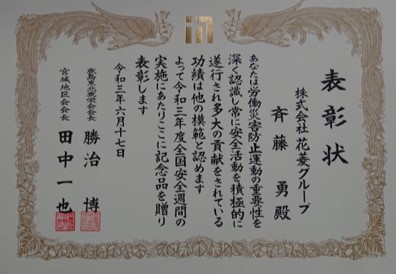 表彰状
株式会社 花菱グループ
斉藤 勇 殿
あなたは労働災害防止運動の重要性を
深く認識し常に安全活動を積極的に
遂行され多大の貢献をされている
功績は他の模範と認めます
よって令和三年度全国安全週間の
実施にあたりここに記念品を贈り
表彰します
令和三年六月十七日
鹿島東北鹿栄会会長
勝治 博
宮城地区会会長
田中 一也